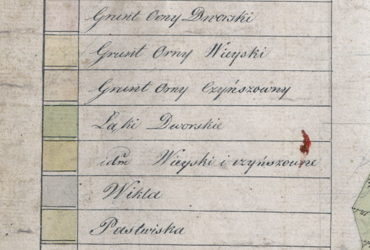 Grunt Orny Dworski
Grunt Orny Wieyski
Grunt Orny Czyńszowny
Łąki Dworskie
idm Wieyski i czyńszowne
Wikla
Pastwiska